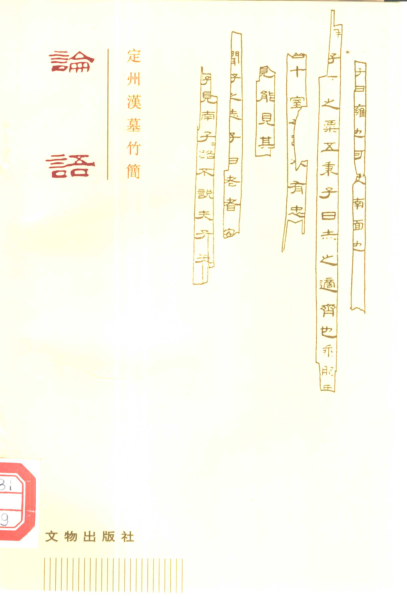 定州漢墓竹簡
論語
子曰雍也可使南面也
子之粟五秉子曰赤之適齊也乘肥
十室有忠
見能見其
聞子之志子曰老者安
子見南子路不說夫子
文物出版社